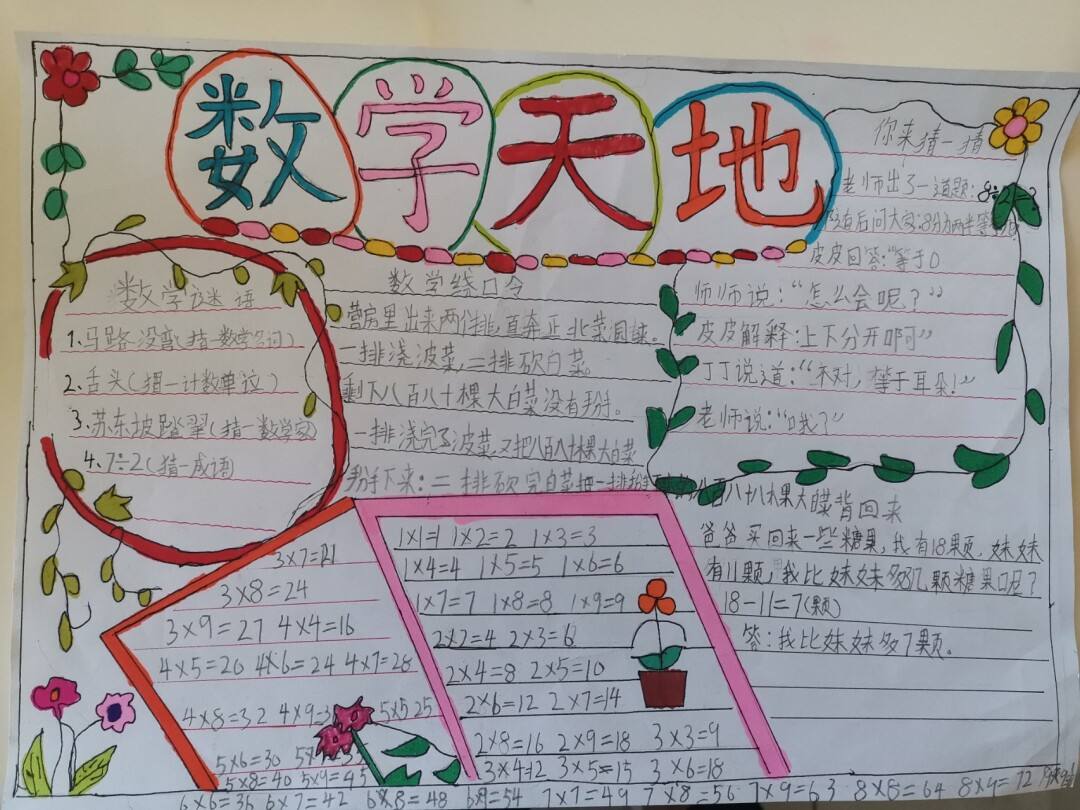 数学天地
数学谜语
1、马路没弯(猜一数学名词)
2、舌头(猜一计数单位)
3、苏东坡踏翠(猜一数学家)
4、7÷2(猜一成语)
数学绕口令
营房里出来两个排,直奔正北菜园来。
一排浇波菜,二排砍白菜。
剩下八百八十棵大白菜没有掰。
一排浇完了波菜,又把八百八十棵大白菜
掰下来;二排砍完白菜把一排掰 八百八十八棵大白菜背回来
你来猜一猜
老师出了一道题:8÷2=?
后问大家:8分为两半等
皮皮回答:“等于0
师师说:“怎么会呢?”
皮皮解释:上下分开啊”
丁丁说道:“不对,等于耳朵!”
老师说:“哦?”
爸爸买回来一些糖果,我有18颗,妹妹
有11颗,我比妹妹多几颗糖果呢?
18-11=7(颗)
答:我比妹妹多7颗。
1×1=1 1×2=2 1×3=3
1×4=4 1×5=5 1×6=6
1×7=7 1×8=8 1×9=9
2×2=4 2×3=6
2×4=8 2×5=10
2×6=12 2×7=14
2×8=16 2×9=18 3×3=9
3×4=12 3×5=15 3×6=18
3×7=21
3×8=24
3×9=27 4×4=16
4×5=20 4×6=24 4×7=28
4×8=32 4×9=3 5×5 25
5×6=30 5×7=35
5×8=40 5×9=45
6×6=36 6×7=42 6×8=48 6×9=54 7×7=49 7×8=56 7×9=63 8×8=64 8×9=72 9×9=81